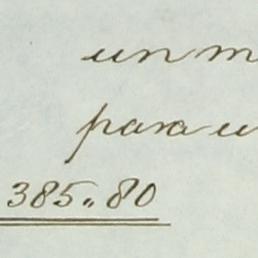 un m
para u
385.,80